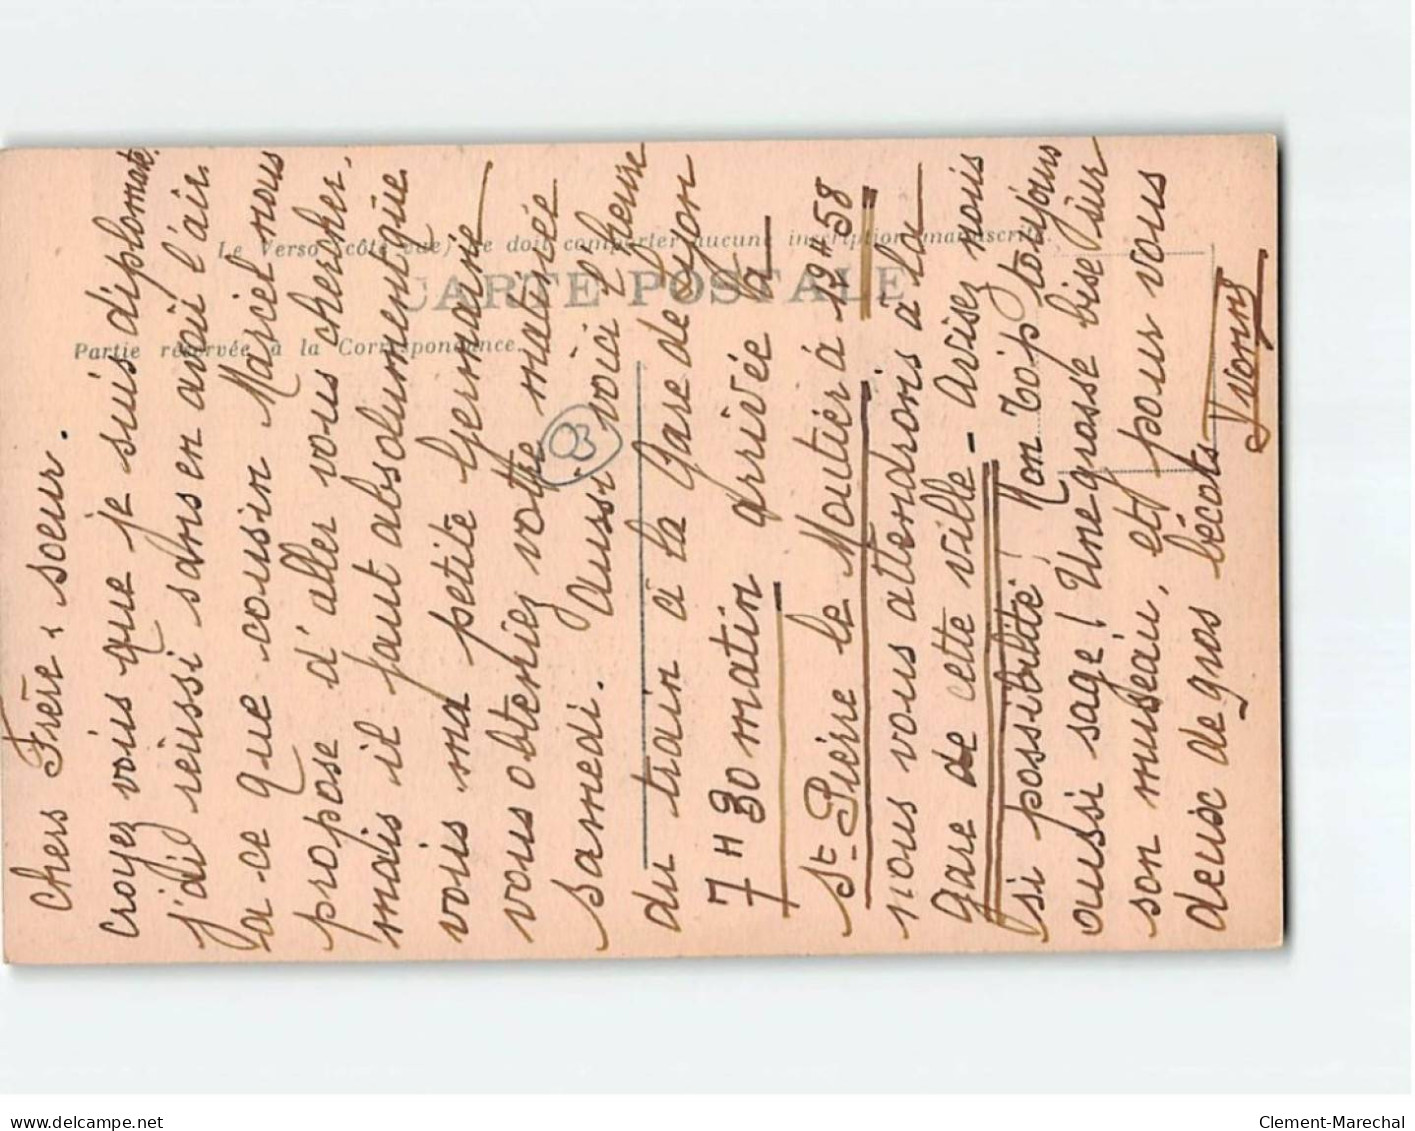 Chers Frère & soeur.
Croyez vous que je suis diplomate!
j'ai réussi sans en avoir l'air
a ce que cousin Marcel nous
propose d'aller vous chercher.
mais il faut absolument que
vous ma petite Germaine
vous obteniez votre matinée
samedi. Aussi voici l'heure
du train à la Gare de Lyon
7H 30 matin arrivée à
St Pierre le Moutier à 19H58
nous vous attendrons à la
gare de cette ville - Avisez nous
si possibilité! Mon Tip toujours
aussi sage! Une grosse bise sur
son museau, et pour vous
deux de gros bécots
Yvonne
Le Verso (côté vue) ne doit comporter aucune inscription manuscrite.
CARTE POSTALE
Partie réservée à la Correspondance.
03
www.delcampe.net
Clement-Marechal